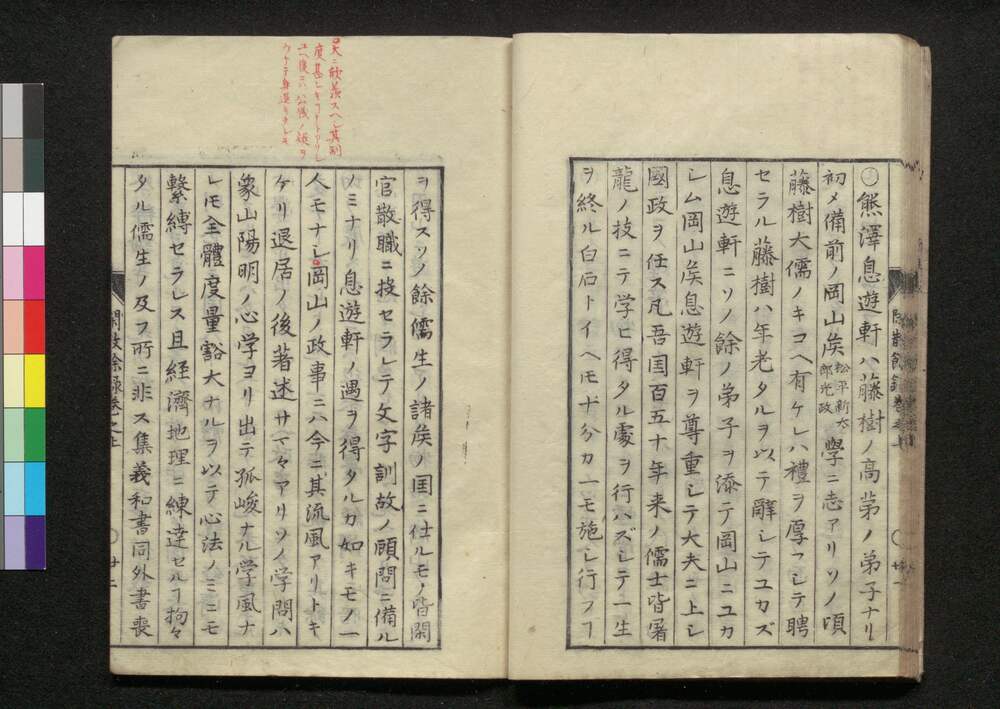 ○熊澤息遊軒ハ藤樹ノ高苐ノ弟子ナリ
初メ備前ノ岡山矦松平新太郎光政學ニ志アリソノ頃
藤樹大儒ノキコヘ有ケレハ禮ヲ厚フシテ聘
セラル藤樹ハ年老タルヲ以テ辭シテユカズ
息遊軒ニソノ餘ノ弟子ヲ添テ岡山ニユカ
シム岡山矦息遊軒ヲ尊重シテ大夫ニ上シ
國政ヲ任ス凡吾国百五十年来ノ儒士皆屠
龍ノ技ニテ学ヒ得タル處ヲ行ハズシテ一生
ヲ終ル白石トイヘモ十分カ一モ施シ行フヿ
ヲ得スソノ餘儒生ノ諸矦ノ国ニ仕ルモノ皆閑
官散職ニ投セラレテ文字訓故ノ顧問ニ備ル
ノミナリ息遊軒ノ遇ヲ得タルカ如キモノ一
人モナシ岡山ノ政事ニハ今ニ其流風アリトキ
ケリ退居ノ後著述サマ々アリソノ学問ハ
象山陽明ノ心学ヨリ出テ孤峻ナル学風ナ
レモ全體度量豁大ナルヲ以テ心法ノミニモ
繋縛セラレス且経濟地理ニ練達セルヿ拘々
タル儒生ノ及フ所ニ非ス集義和書同外書喪
閑散餘録巻之上
廿二